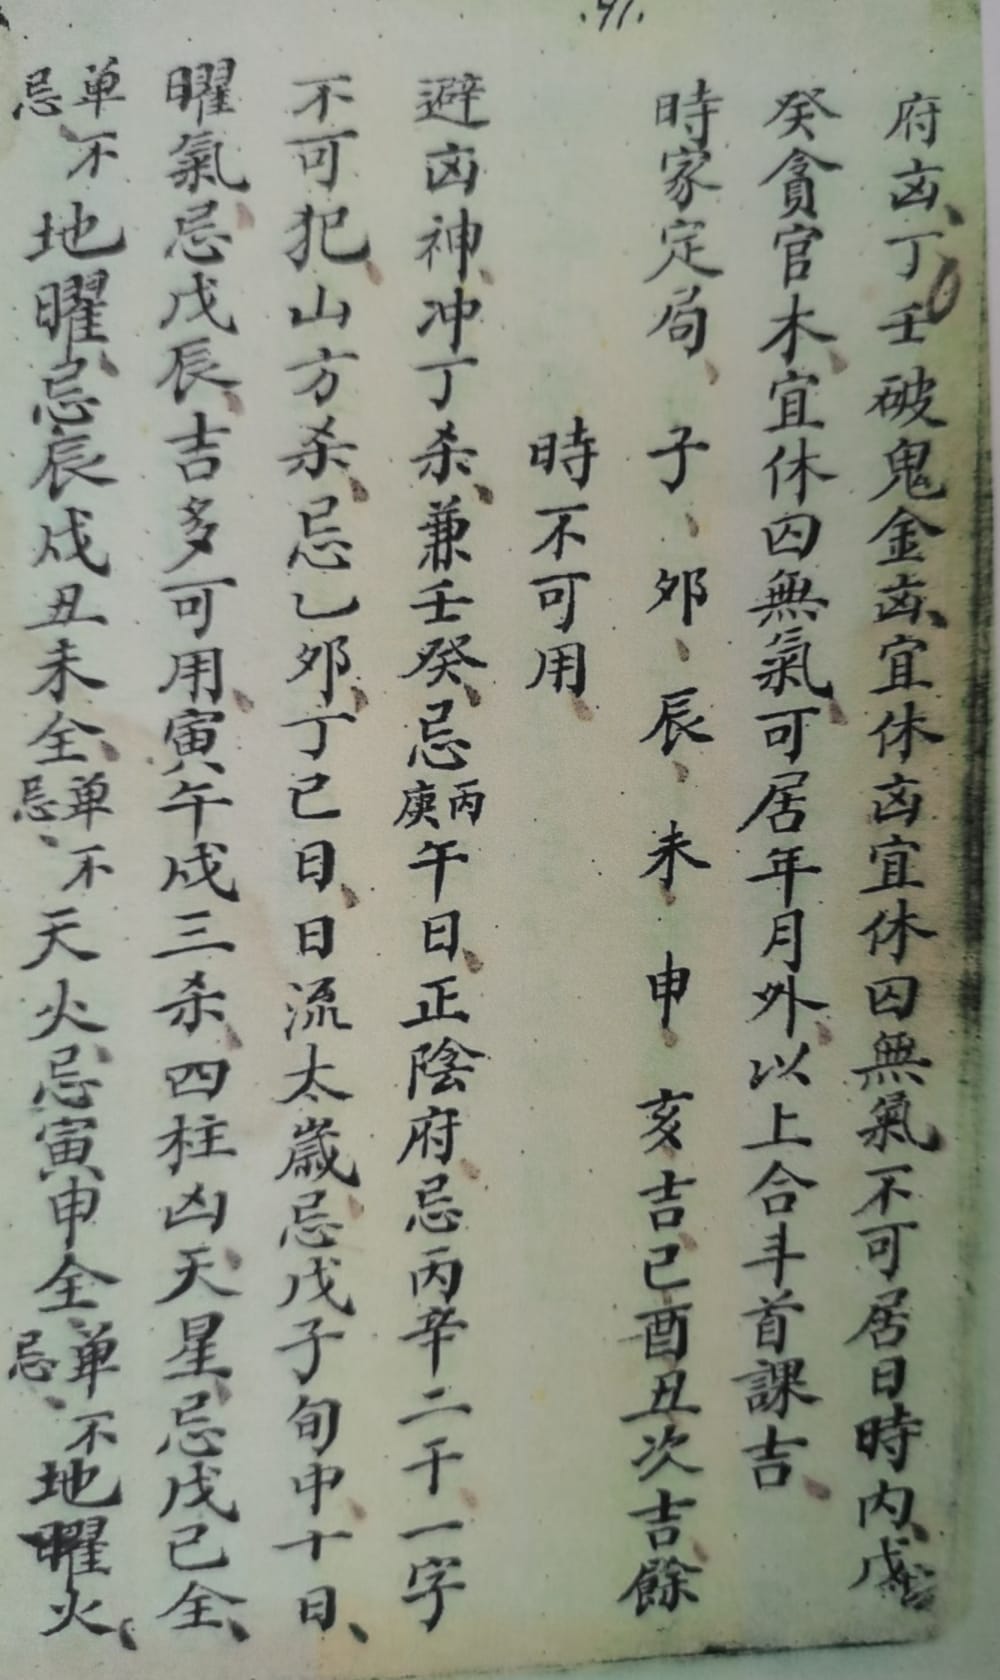 .41.
府凶、丁壬破鬼金凶、宜休凶宜休囚無氣不可居日時内、戊
癸貪官木、宜休囚無氣、可居年月外、以上合斗首課吉、
時家定局、子、邜、辰、未、申、亥吉、巳酉丑次吉、餘
時不可用、
避凶神、冲丁杀、兼壬癸、忌丙庚午日、正陰府、忌丙辛二干一字
不可犯、山方杀、忌乙邜、丁巳日、日流太歲、忌戊子旬中十日、
曜氣、忌戊辰、吉多可用、寅午戍三杀、四柱凶天、星、忌戊己全、
单不忌、地曜、忌辰戍丑未全、单不忌、天火、忌寅申全、单不忌、地曜火、